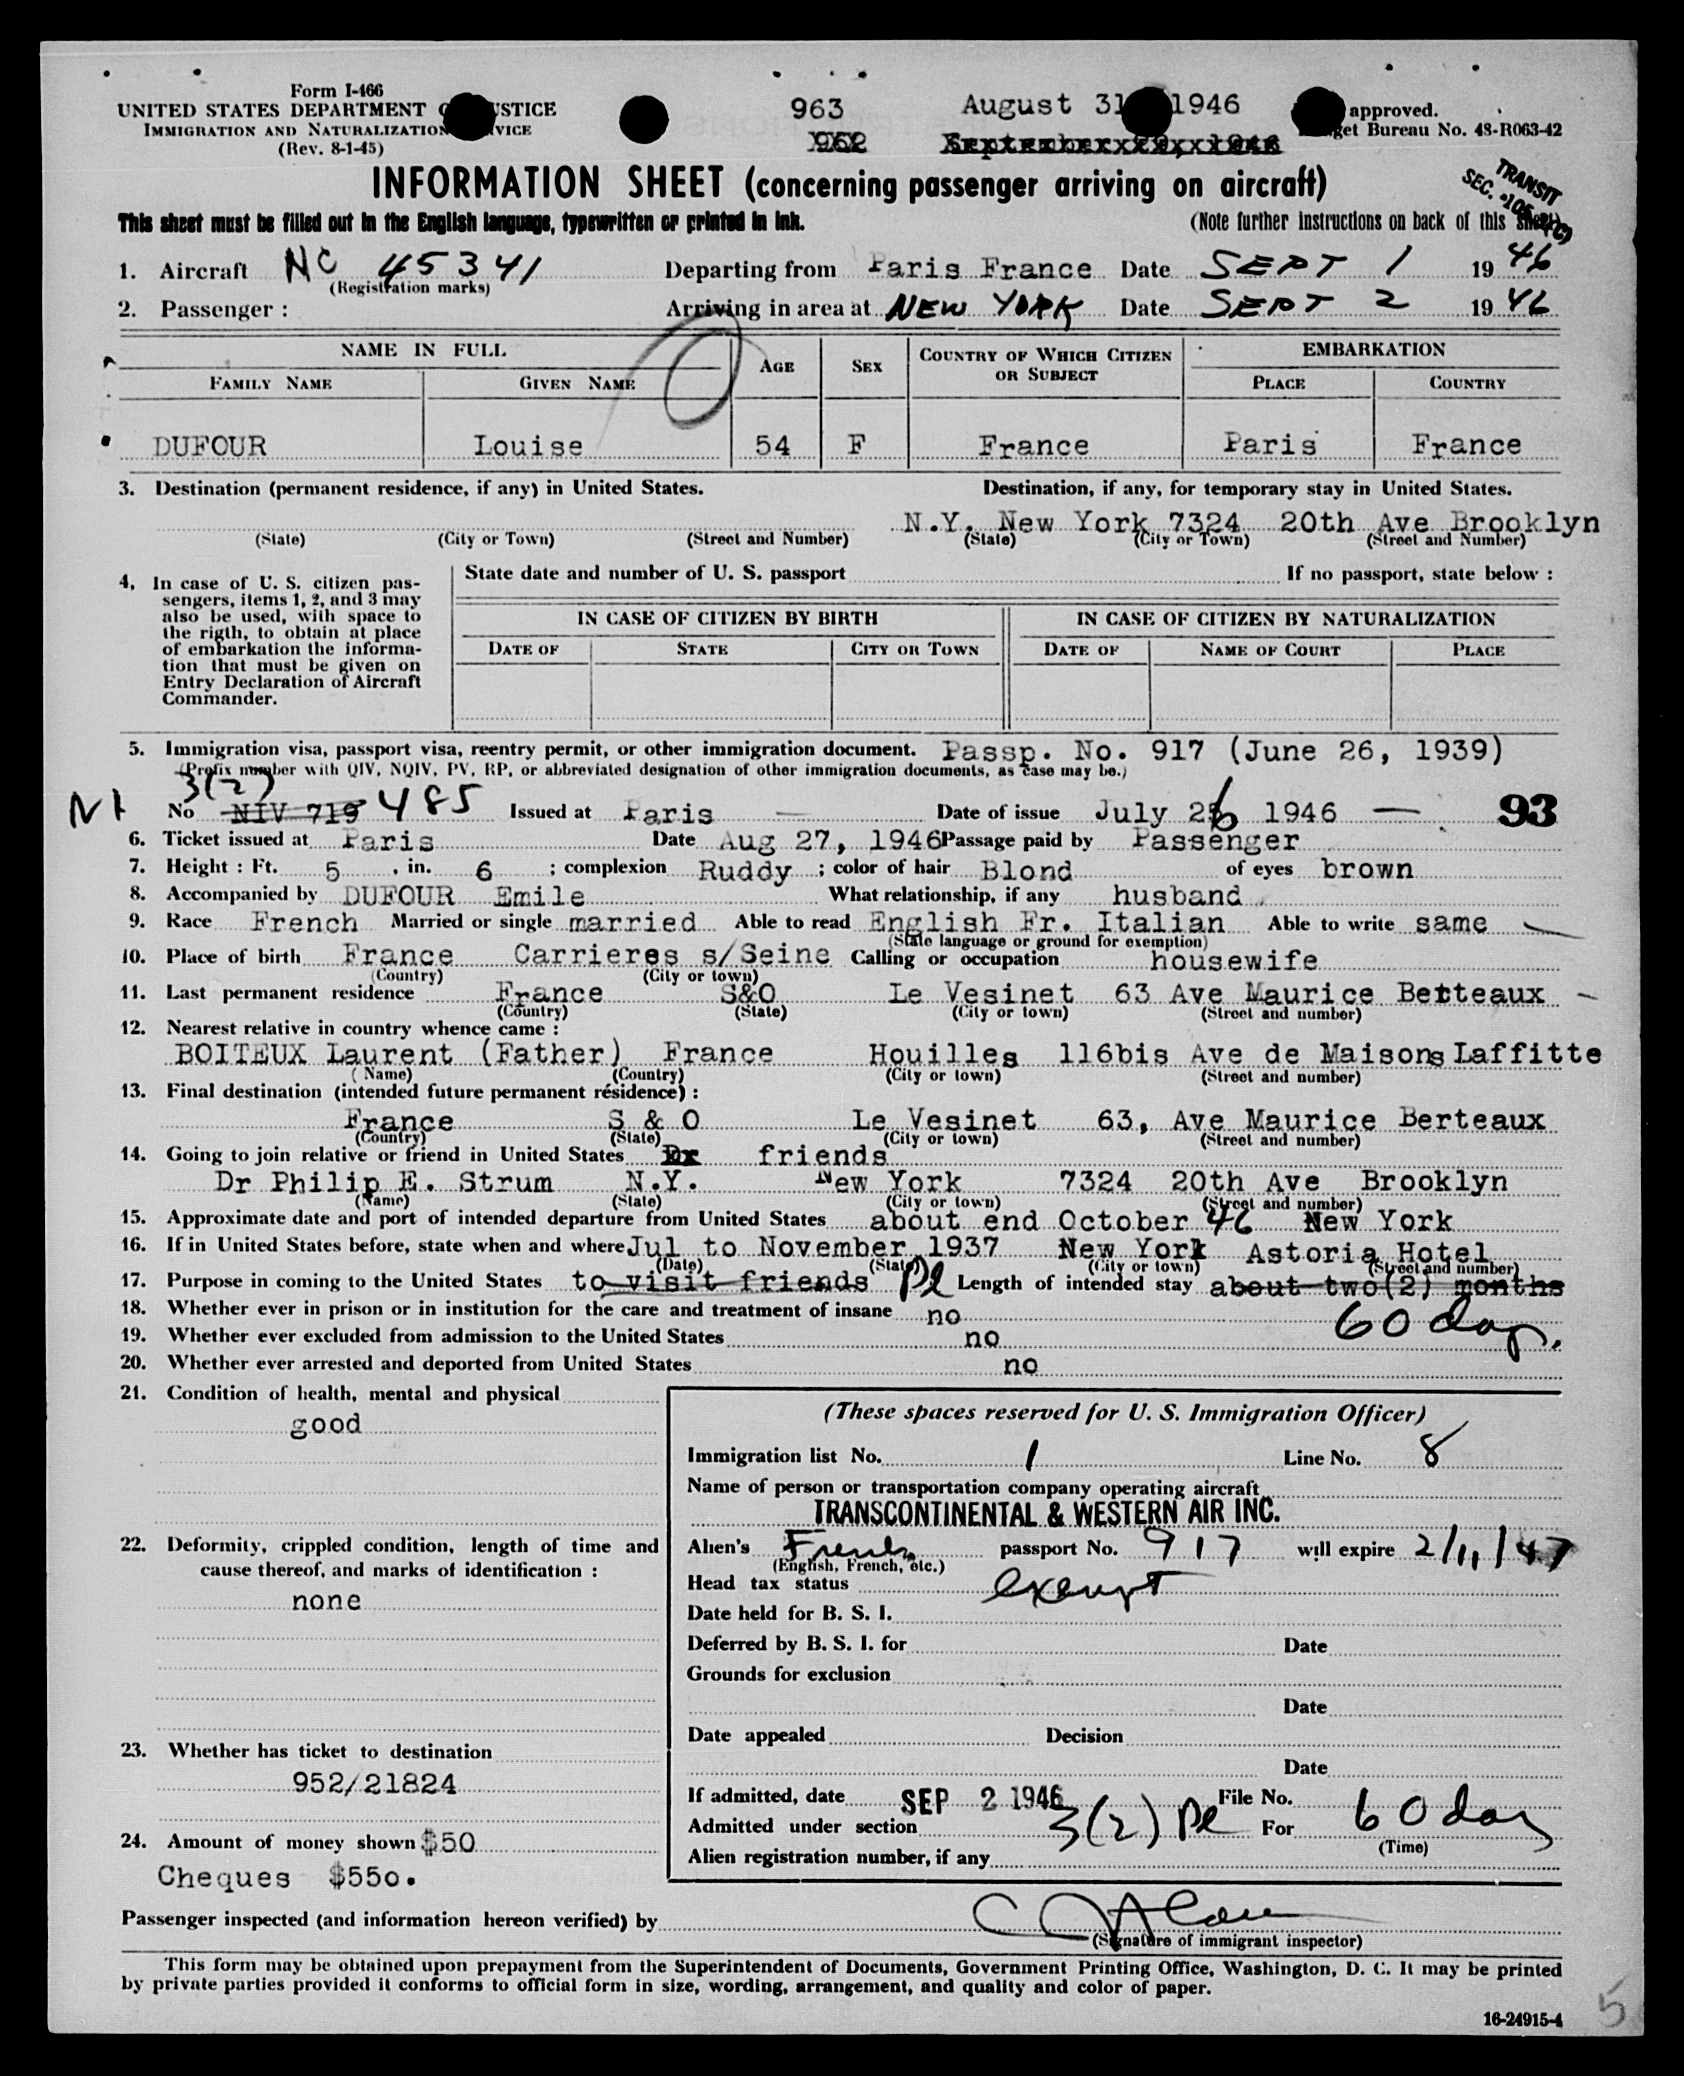 Form I-466
UNITED STATES DEPARTMENT USTICE
IMMIGRATION AND NATURALIZATION VICE
(Rev. 8-1-45)
963 August 31 1946 approved.
962 September 1946 get Bureau No. 43-R063-42
INFORMATION SHEET (concerning passenger arriving on aircraft)
TRANSIT
SEC.
This sheet must be filled out in the English language, typewritten or printed in ink. (Note further instructions on back of this sheet)
1. Aircraft NC 45341 Departing from Paris France Date SEPT 1 1946
(Registration marks)
2. Passenger : Arriving in area at NEW YORK Date SEPT 2 1946
NAME IN FULL AGE SEX COUNTRY OF WHICH CITIZEN OR SUBJECT EMBARKATION
FAMILY NAME GIVEN NAME PLACE COUNTRY
DUFOUR Louise 54 F France Paris France
3. Destination (permanent residence, if any) in United States. Destination, if any, for temporary stay in United States.
N.Y. New York 7324 20th Ave Brooklyn
(State) (City or Town) (Street and Number) (State) (City or Town) (Street and Number)
4, In case of U. S. citizen pas-
sengers, items 1, 2, and 3 may
also be used, with space to
the rigth, to obtain at place
of embarkation the informa-
tion that must be given on
Entry Declaration of Aircraft
Commander.
State date and number of U. S. passport If no passport, state below :
IN CASE OF CITIZEN BY BIRTH IN CASE OF CITIZEN BY NATURALIZATION
DATE OF STATE CITY OR TOWN DATE OF NAME OF COURT PLACE
5. Immigration visa, passport visa, reentry permit, or other immigration document. Passp. No. 917 (June 26, 1939)
(Prefix number with QIV, NQIV, PV, RP, or abbreviated designation of other immigration documents, as case may be.)
3(2)
No NIV 719 485 Issued at Paris — Date of issue July 26 1946 — 93
6. Ticket issued at Paris Date Aug 27, 1946 Passage paid by Passenger
7. Height : Ft. 5 , in. 6 ; complexion Ruddy ; color of hair Blond of eyes brown
8. Accompanied by DUFOUR Emile What relationship, if any husband
9. Race French Married or single married Able to read English Fr. Italian Able to write same
(State language or ground for exemption)
10. Place of birth France Carrieres s/Seine Calling or occupation housewife
(Country) (City or town)
11. Last permanent residence France S&O Le Vesinet 63 Ave Maurice Betteaux
(Country) (State) (City or town) (Street and number)
12. Nearest relative in country whence came :
BOITEUX Laurent (Father) France Houilles 116bis Ave de Maisons Laffitte
(Name) (Country) (City or town) (Street and number)
13. Final destination (intended future permanent résidence) :
France S & O Le Vesinet 63, Ave Maurice Berteaux
(Country) (State) (City or town) (Street and number)
14. Going to join relative or friend in United States Dr friends
Dr Philip E. Strum N.Y. New York 7324 20th Ave Brooklyn
(Name) (State) (City or town) (Street and number)
15. Approximate date and port of intended departure from United States about end October 46 New York
16. If in United States before, state when and where Jul to November 1937 New York Astoria Hotel
(Date) (State) (City or town) (Street and number)
17. Purpose in coming to the United States to visit friends Pl Length of intended stay about two(2) months
18. Whether ever in prison or in institution for the care and treatment of insane no 60 days
19. Whether ever excluded from admission to the United States no
20. Whether ever arrested and deported from United States no
21. Condition of health, mental and physical
good
22. Deformity, crippled condition, length of time and
cause thereof, and marks of identification :
none
23. Whether has ticket to destination
952/21824
24. Amount of money shown $50
Cheques $550.
(These spaces reserved for U. S. Immigration Officer)
Immigration list No. 1 Line No. 8
Name of person or transportation company operating aircraft
TRANSCONTINENTAL & WESTERN AIR INC.
Alien's French passport No. 917 will expire 2/11/47
(English, French, etc.)
Head tax status exempt
Date held for B. S. I.
Deferred by B. S. I. for Date
Grounds for exclusion
Date
Date appealed Decision
Date
If admitted, date SEP 2 1946 File No.
Admitted under section 3(2) Pl For 60 days
(Time)
Alien registration number, if any
Passenger inspected (and information hereon verified) by
(Signature of immigrant inspector)
This form may be obtained upon prepayment from the Superintendent of Documents, Government Printing Office, Washington, D. C. It may be printed
by private parties provided it conforms to official form in size, wording, arrangement, and quality and color of paper.
16-24915-4
5